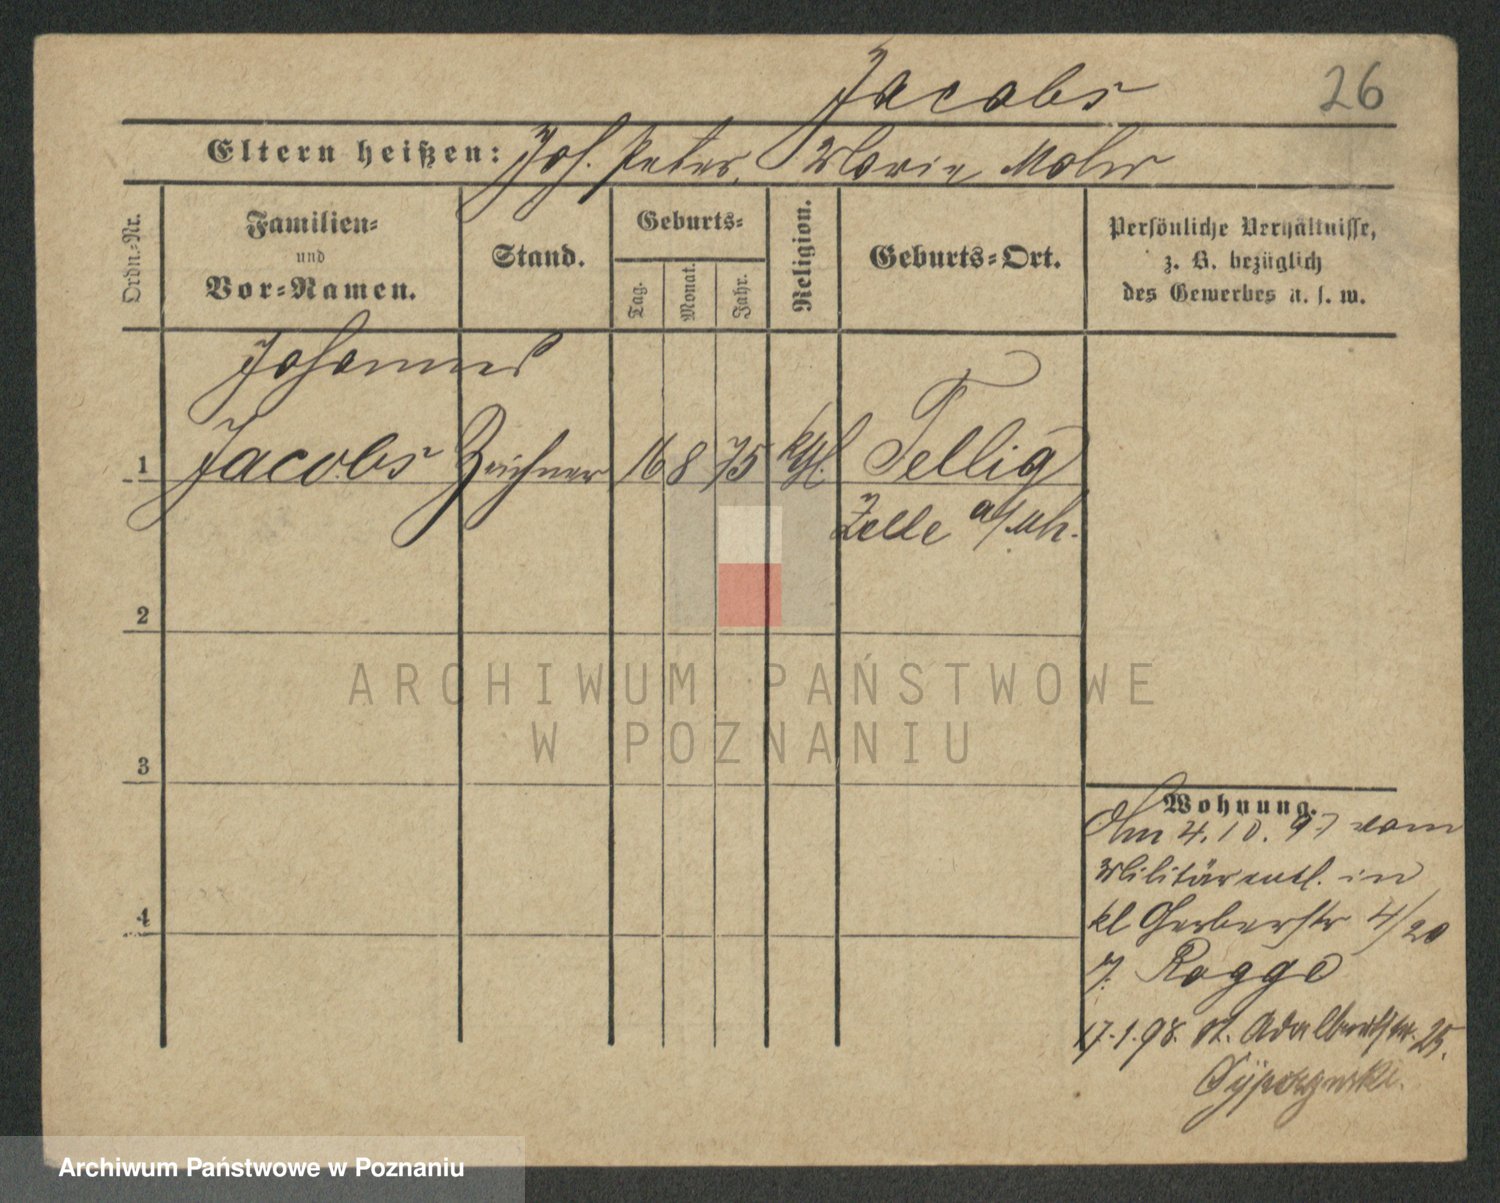 Jacobs
26
Eltern heißen: Joh. Peter, Marie Mohr
Ordn.-Nr.
Familien-
und
Vor-Namen.
Stand.
Geburts-
Tag.
Monat.
Jahr.
Religion.
Geburts-Ort.
Persönliche Verhältnisse,
z. B. bezüglich
des Gewerbes u. s. w.
Johannes
1 Jacobs Zeichner 16 8 75 kth. Tellig
Zelle a/Mh.
2
3
4
ARCHIWUM PAŃSTWOWE
W POZNANIU
Wohnung.
Am 4.10.97 vom
Militär entl. in
kl Gerberstr 4/20
b. Rogge
17.1.98. St. Adalbertstr. 25.
Archiwum Państwowe w Poznaniu